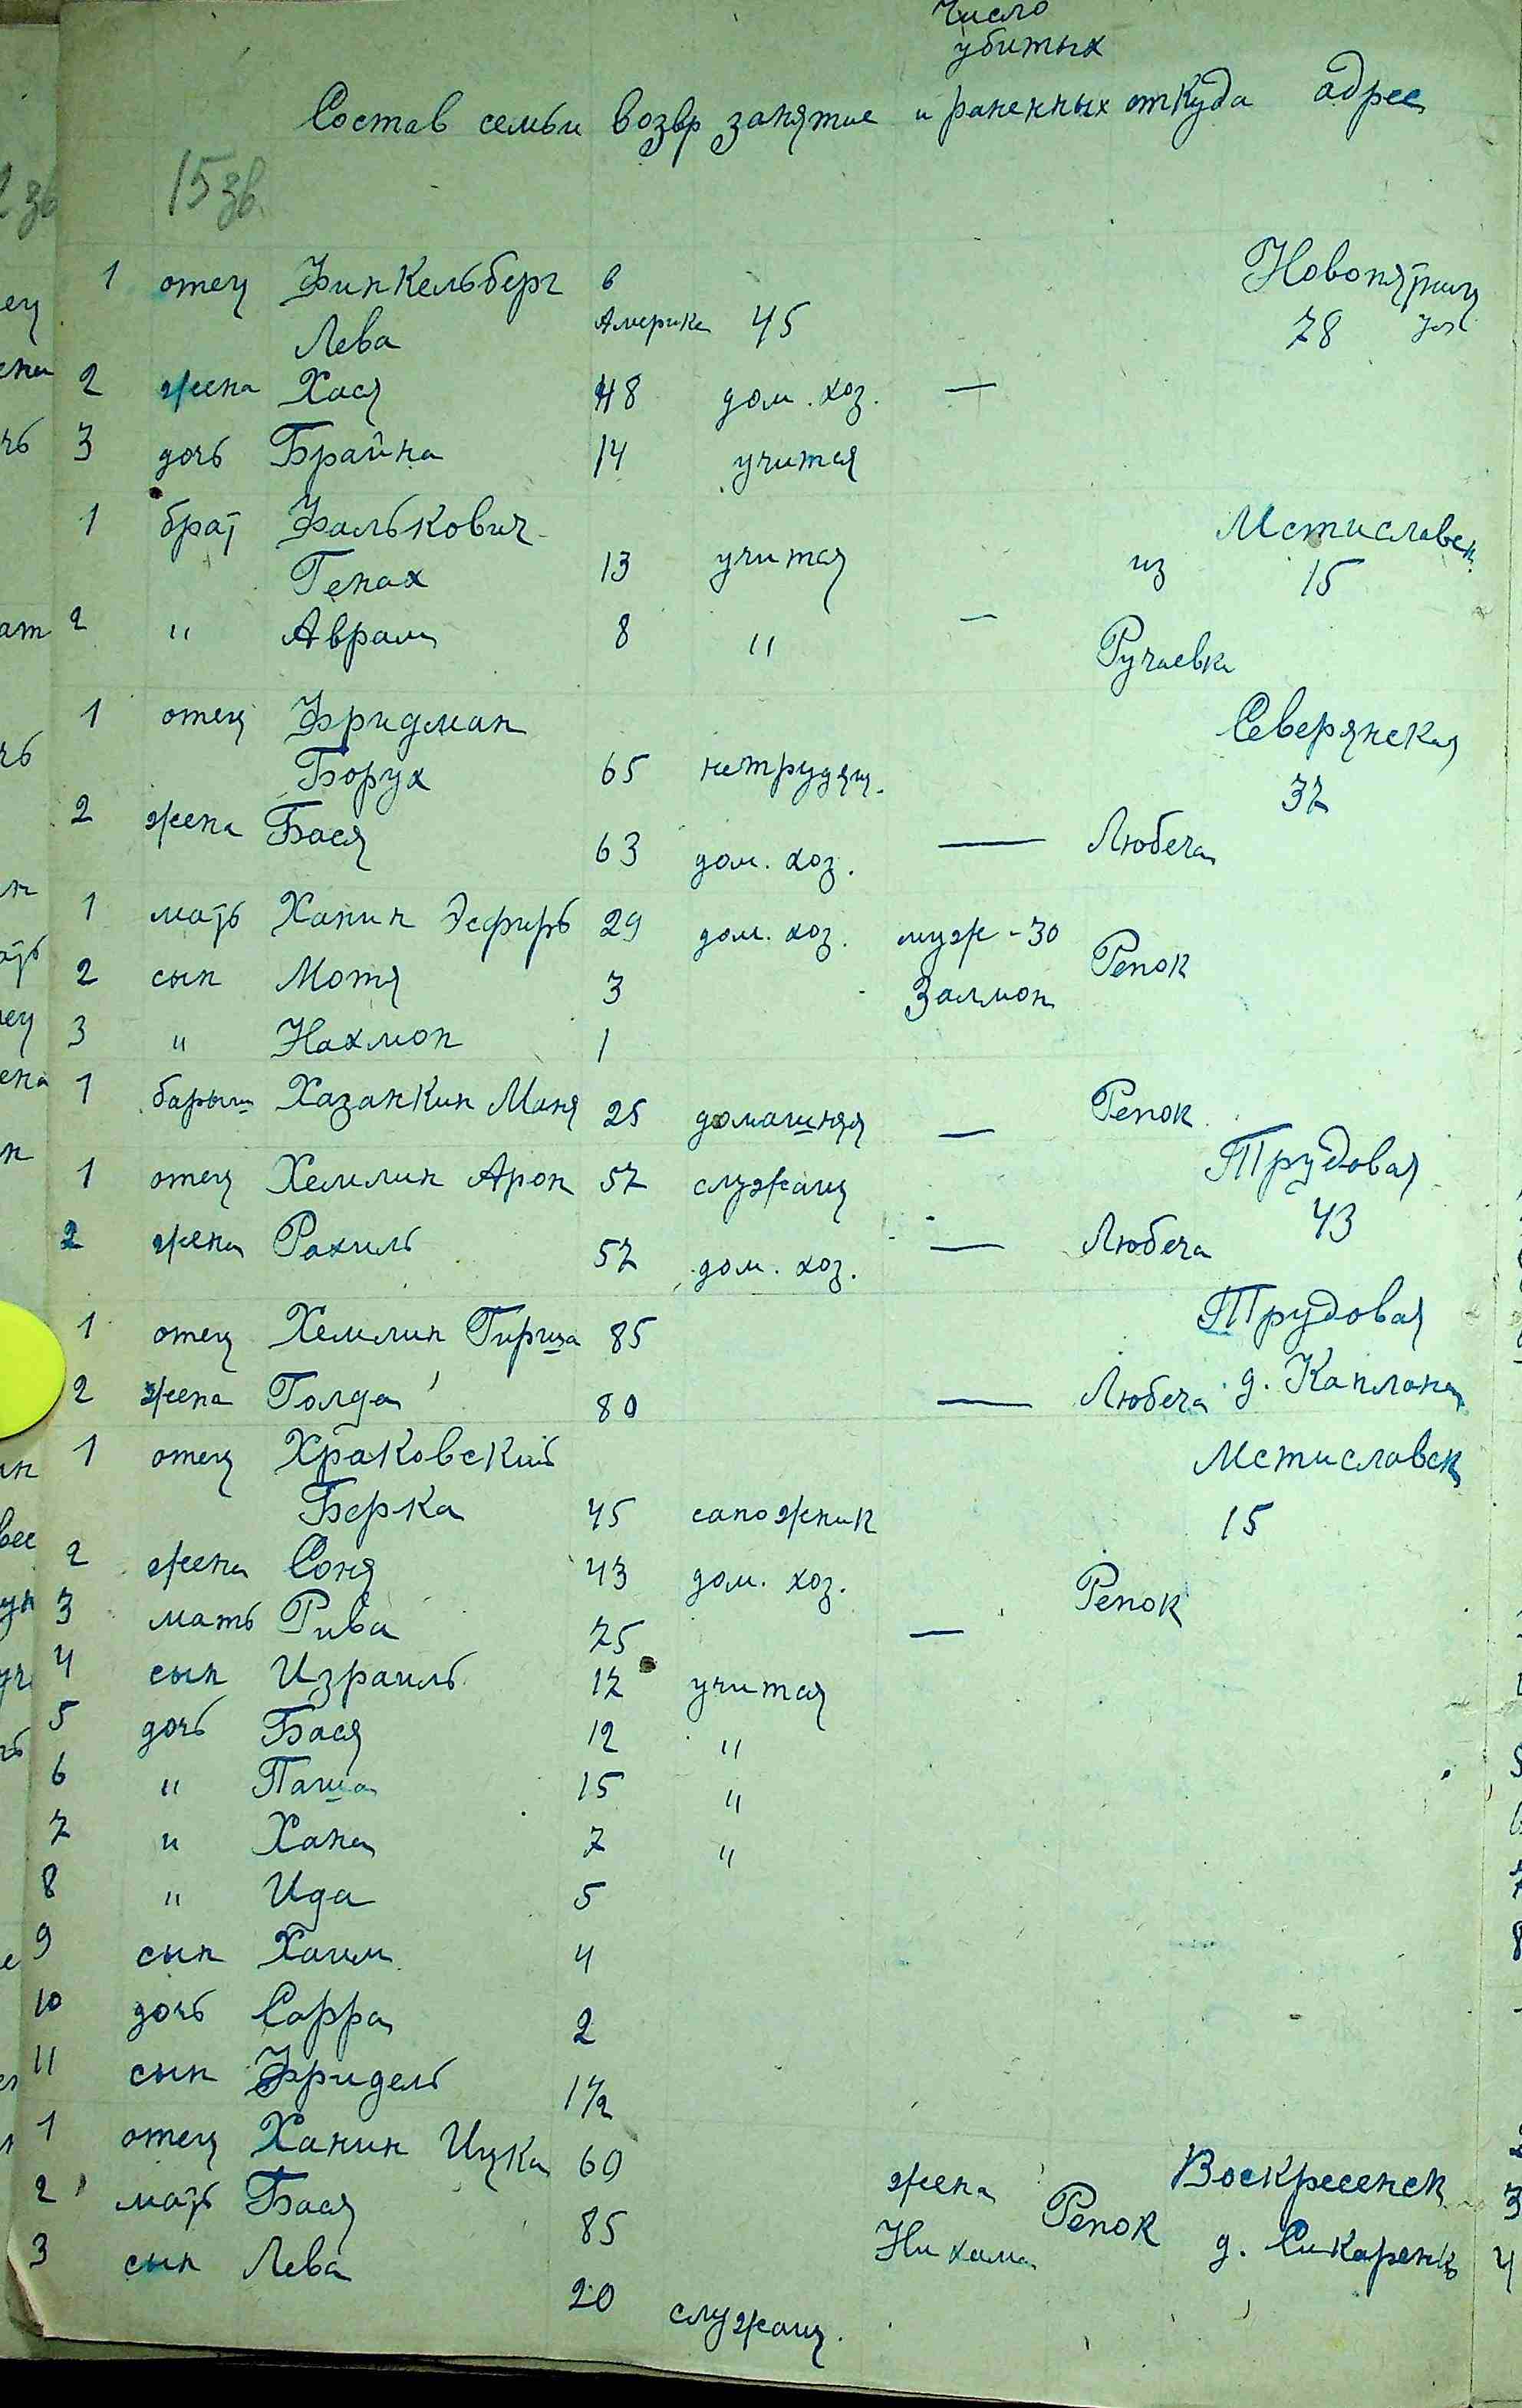 Число
убитых
Состав семьи возвр занятие и раненных откуда адрес
15 зв.
1 отец Финкельберг в Новопятниц
Лева Америке 45 78 ул
2 жена Хася 48 дом. хоз. —
3 дочь Брайна 14 учится
1 брат Фалькович Мстиславск
Генах 13 учится из 15
2 " Аврам 8 " — Ручаевка
1 отец Фридман Северянская
Борух 65 нетрудящ. 37
2 жена Бася 63 дом. хоз. — Любеча
1 мать Ханин Эсфирь 29 дом. хоз. муж - 30 Репок
2 сын Мотя 3 Залмон
3 " Нахмон 1
1 барыш Хазанкин Маня 25 домашняя — Репок
1 отец Хемлин Арон 57 служащ Трудовая
43
2 жена Рахиль 57 дом. хоз. — Любеча
1 отец Хемлин Гирша 85 Трудовая
2 жена Голда 80 — Любеча д. Каплана
1 отец Храковский Мстиславск
Берка 45 сапожник 15
2 жена Соня 43 дом. хоз. Репок
3 мать Рива 75 —
4 сын Израиль 17 учится
5 дочь Бася 12 "
6 " Паша 15 "
7 " Хана 7 "
8 " Ида 5
9 сын Хаим 4
10 дочь Сарра 2
11 сын Фридель 1 1/2
1 отец Ханин Ицка 60 жена Репок Воскресенск
2 мать Бася 85 Нихама д. Сикаренко
3 сын Лева 20 служащ.